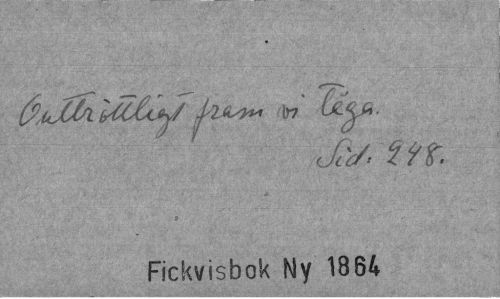 Outtröttligt fram vi tåga.
Sid. 248.
Fickvisbok Ny 1864